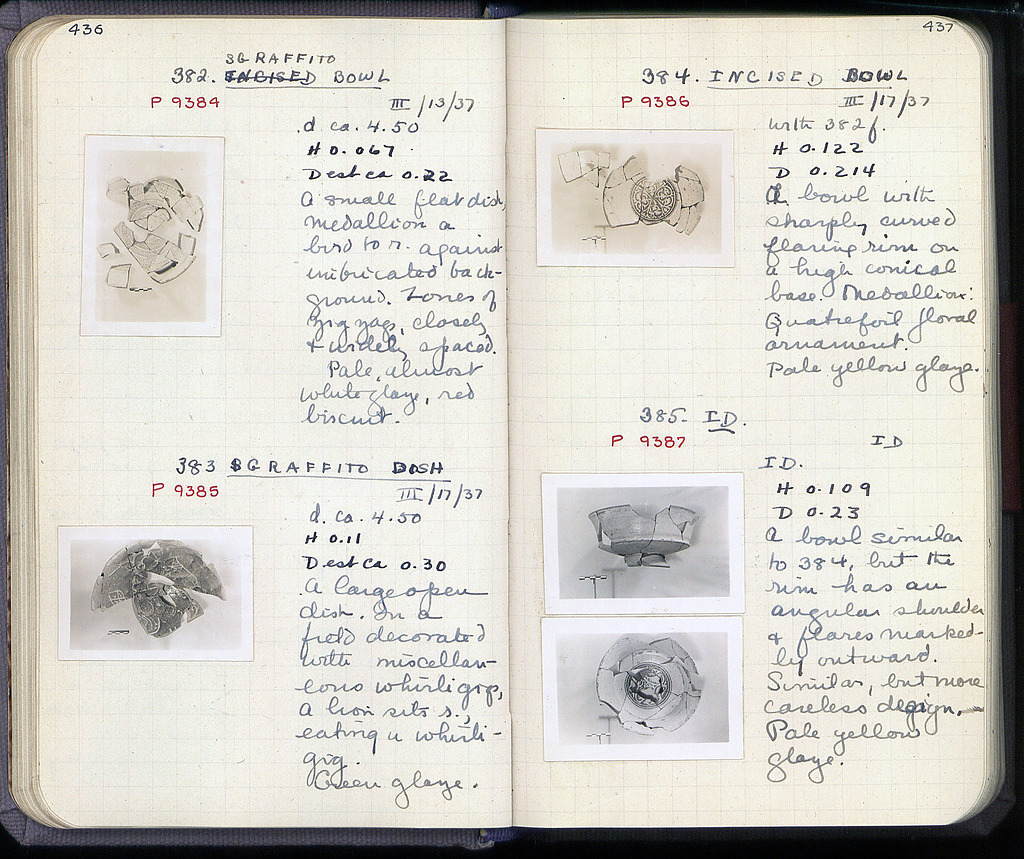 436
SGRAFFITO
382. INCISED BOWL
P 9384
III/13/37
d. ca. 4.50
H 0.067
D est ca 0.22
A small flat dish,
medallion a
bird to r. against
imbricated back-
ground. Zones of
zigzags, closely
& widely spaced.
Pale, almost
white glaze, red
biscuit.
383 SGRAFFITO DISH
P 9385
III/17/37
d. ca. 4.50
H 0.11
D est ca 0.30
A large open
dish. In a
field decorated
with miscellan-
eous whirligigs,
a lion sits
eating a whirli-
gig.
Green glaze.
437
384. INCISED BOWL
P 9386
III/17/37
with 382f.
H 0.122
D 0.214
A bowl with
sharply curved
flaring rim on
a high conical
base. Medallion:
Quatrefoil floral
ornament.
Pale yellow glaze.
385. ID.
P 9387
ID
ID.
H 0.109
D 0.23
A bowl similar
to 384, but the
rim has an
angular shoulder
& flares marked-
ly outward.
Similar, but more
careless design.
Pale yellow
glaze.